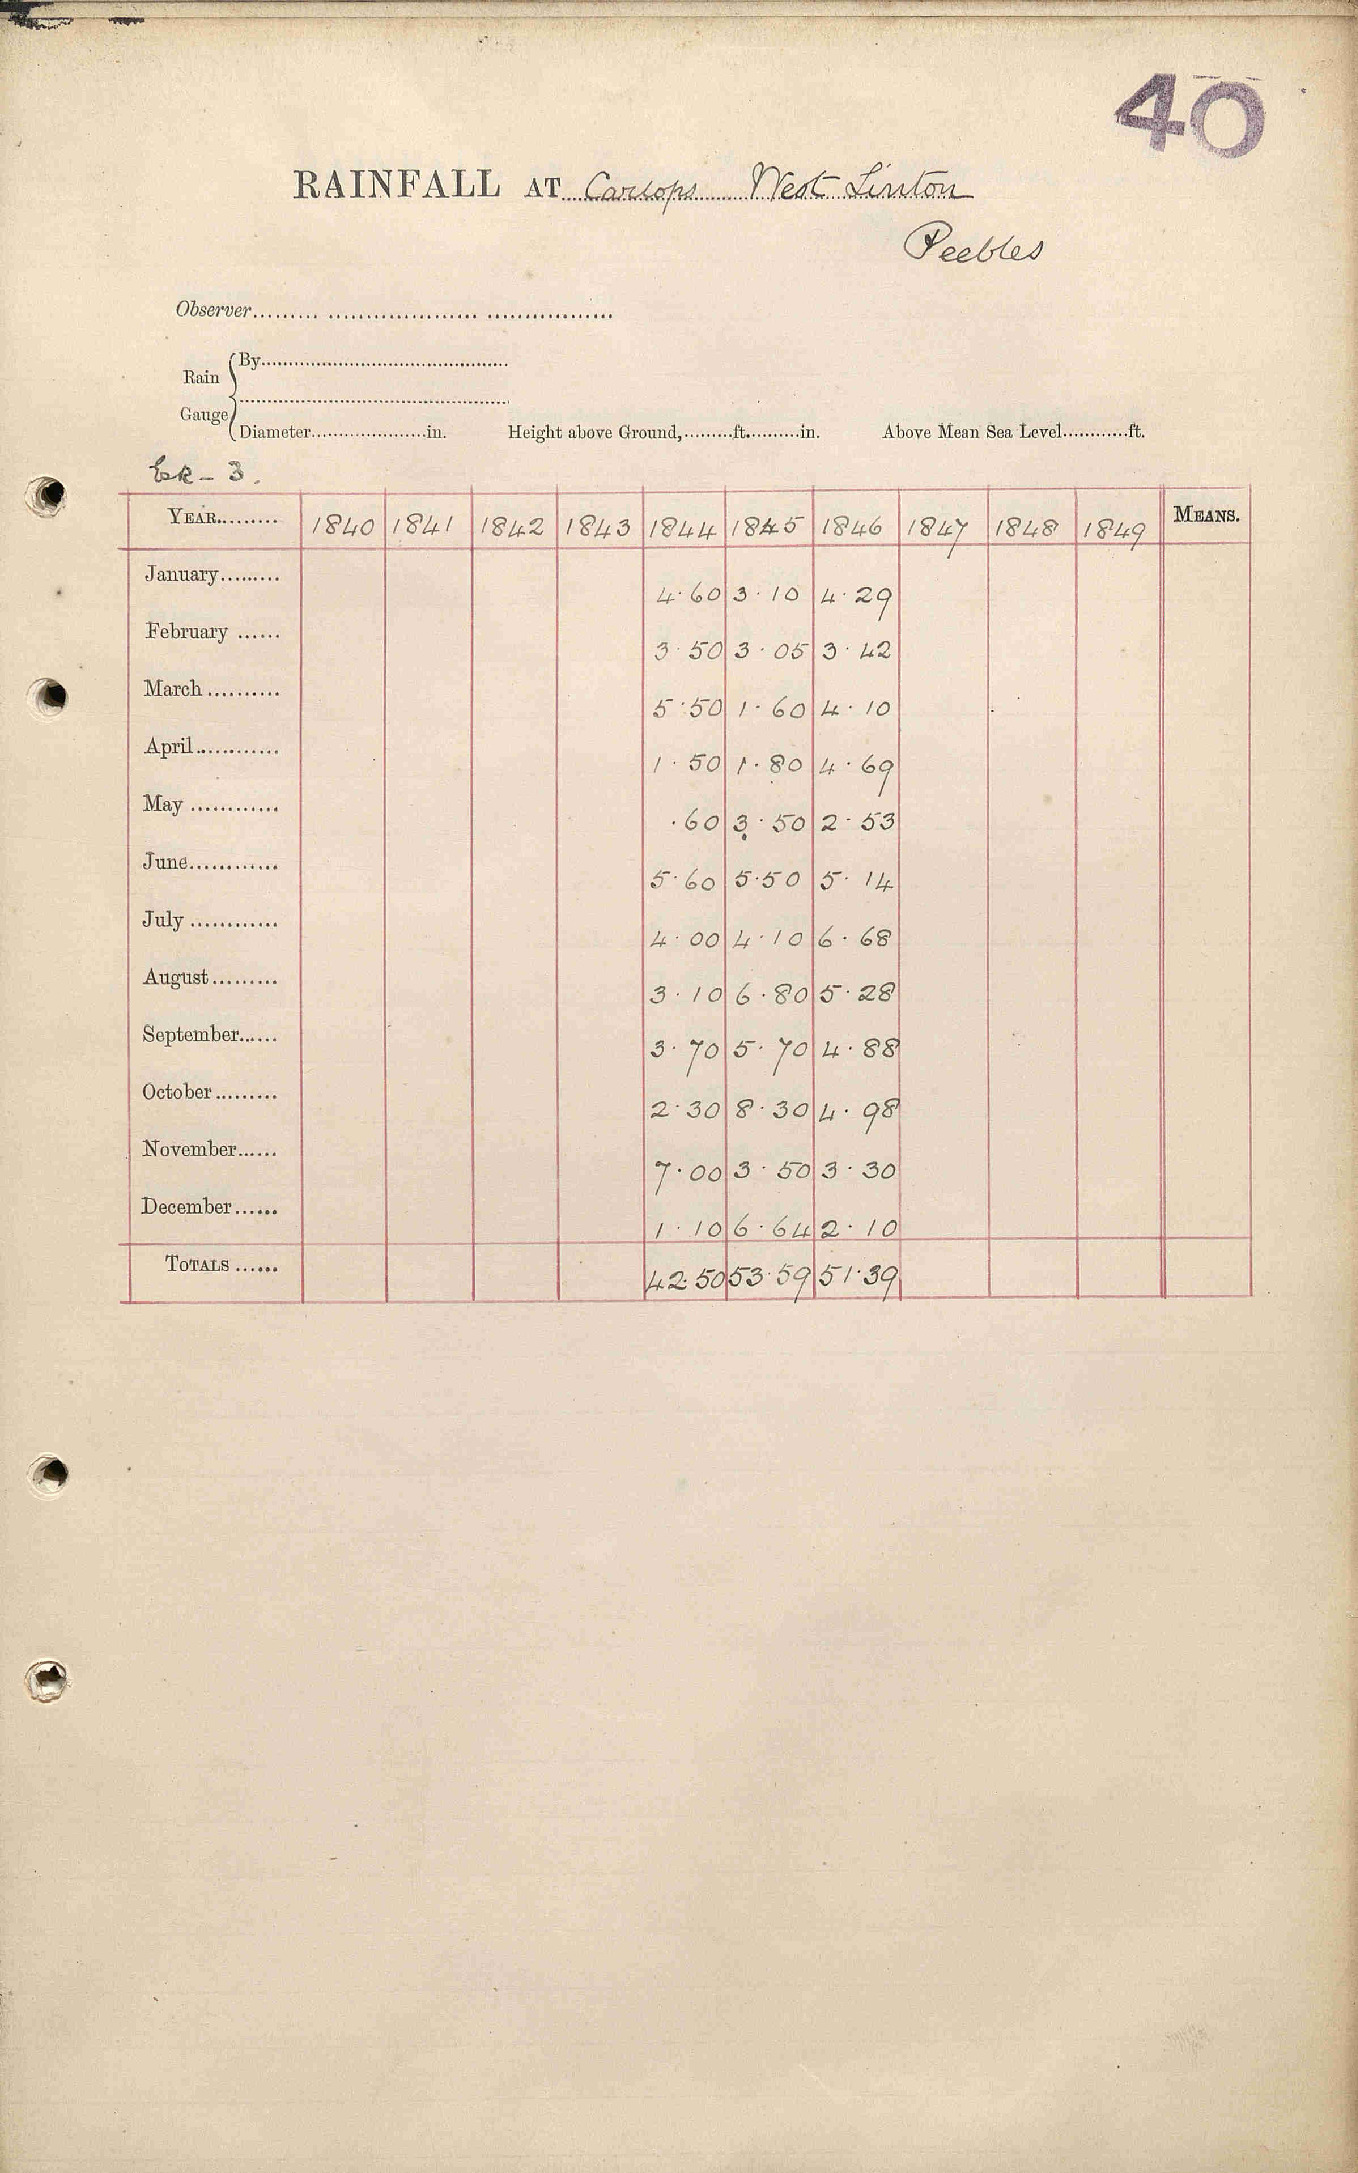 40
RAINFALL AT Carlops West Linton
Peebles
Observer
Rain Gauge
By
Diameter in. Height above Ground, ft. in. Above Mean Sea Level ft.
YEAR 1840 1841 1842 1843 1844 1845 1846 1847 1848 1849 MEANS.
January 4.60 3.10 4.29
February 3.50 3.05 3.42
March 5.50 1.60 4.10
April 1.50 1.80 4.69
May .60 3.50 2.53
June 5.60 5.50 5.14
July 4.00 4.10 6.68
August 3.10 6.80 5.28
September 3.70 5.70 4.88
October 2.30 8.30 4.98
November 7.00 3.50 3.30
December 1.10 6.64 2.10
TOTALS 42.50 53.59 51.39